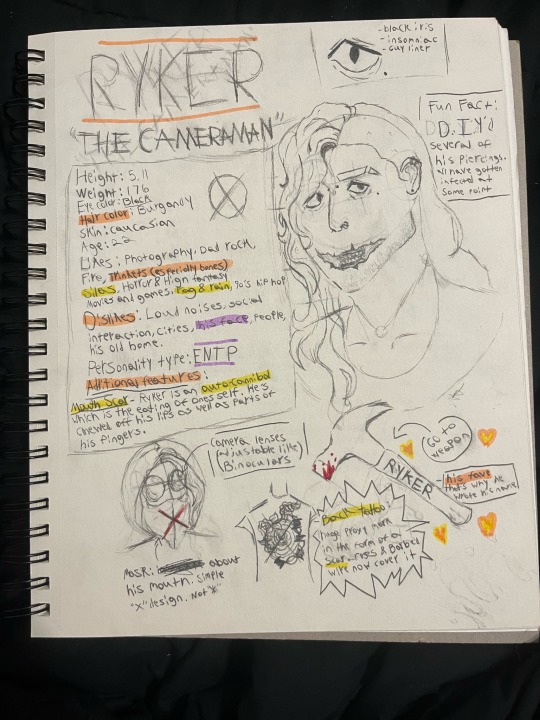 RYKER
"THE CAMERAMAN"
- black iris
- insomniac
- guy liner
Fun Fact:
D.I.Y'd
several of
his piercings.
All have gotten
infected at
some point
Height: 5,11
Weight: 176
Eye color: Black
Hair color: Burgandy
Skin: caucasian
Age: 22
Likes: Photography, Dad rock,
Fire, Trinkets (especially bones)
Horror & High fantasy
Movies and games, Fog & rain, 90's hip hop
Dislikes: Loud noises, social
interaction, cities, his face, people,
his old home.
Personality type: ENTP
Aditional features:
Mouth Scar - Ryker is an auto-cannibal
which is the eating of ones self. He's
chewed off his lips as well as parts of
his fingers.
Camera lenses
(adjustable like)
(Binoculars)
Go to
weapon
RYKER
his fave
that's why he
wrote his name
Back tattoo:
huge proxy mark
in the form of a
scar. roses & Barbed
wire now cover it
Mask: about
his mouth. simple
"x" design. Not